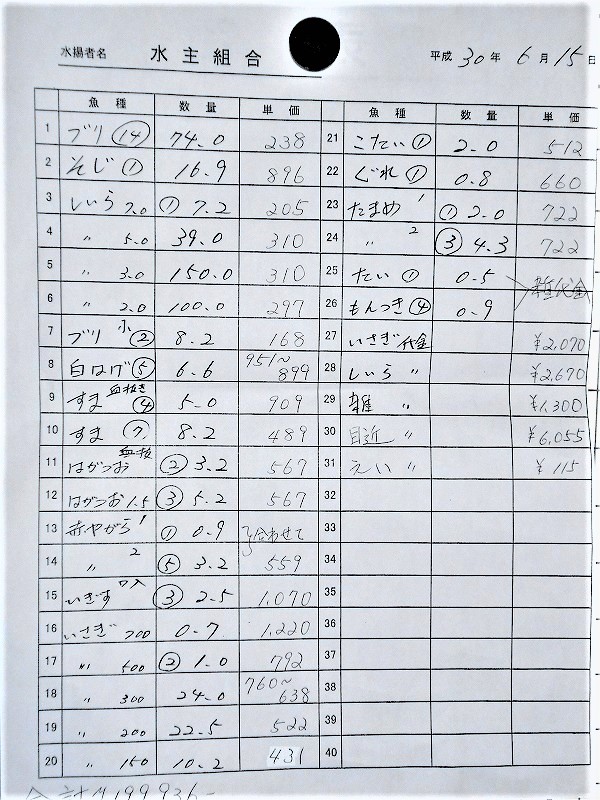 水揚者名 水主組合 平成 30年 6月 15日
魚種 数量 単価 魚種 数量 単価
1 ブリ ⑭ 74.0 238 21 こたい ① 2.0 512
2 そじ ① 16.9 896 22 ぐれ ① 0.8 660
3 しいら 7.0 ① 7.2 205 23 たまめ 1 ① 2.0 722
4 〃 5.0 39.0 310 24 〃 2 ③ 4.3 722
5 〃 3.0 150.0 310 25 たい ① 0.5 雑代金
6 〃 2.0 100.0 297 26 もんつき ④ 0.9
7 ブリ 小 ② 8.2 168 27 いさぎ 代金 ¥2,070
8 白はげ ⑤ 6.6 951〜899 28 しいら 〃 ¥2,670
9 すま 血抜き ④ 5.0 909 29 雑 〃 ¥1,300
10 すま ⑦ 8.2 489 30 目近 〃 ¥6,055
11 はがつお 血抜 ② 3.2 567 31 えい 〃 ¥115
12 はがつお 1.5 ③ 5.2 567 32
13 赤やがら 1 ① 0.9 合わせて 33
14 〃 2 ⑤ 3.2 559 34
15 いぎす ③ 2.5 1,070 35
16 いさぎ 700 0.7 1,220 36
17 〃 500 ② 1.0 792 37
18 〃 300 24.0 760〜638 38
19 〃 200 22.5 522 39
20 〃 150 10.2 431 40
合計 ¥199,936-